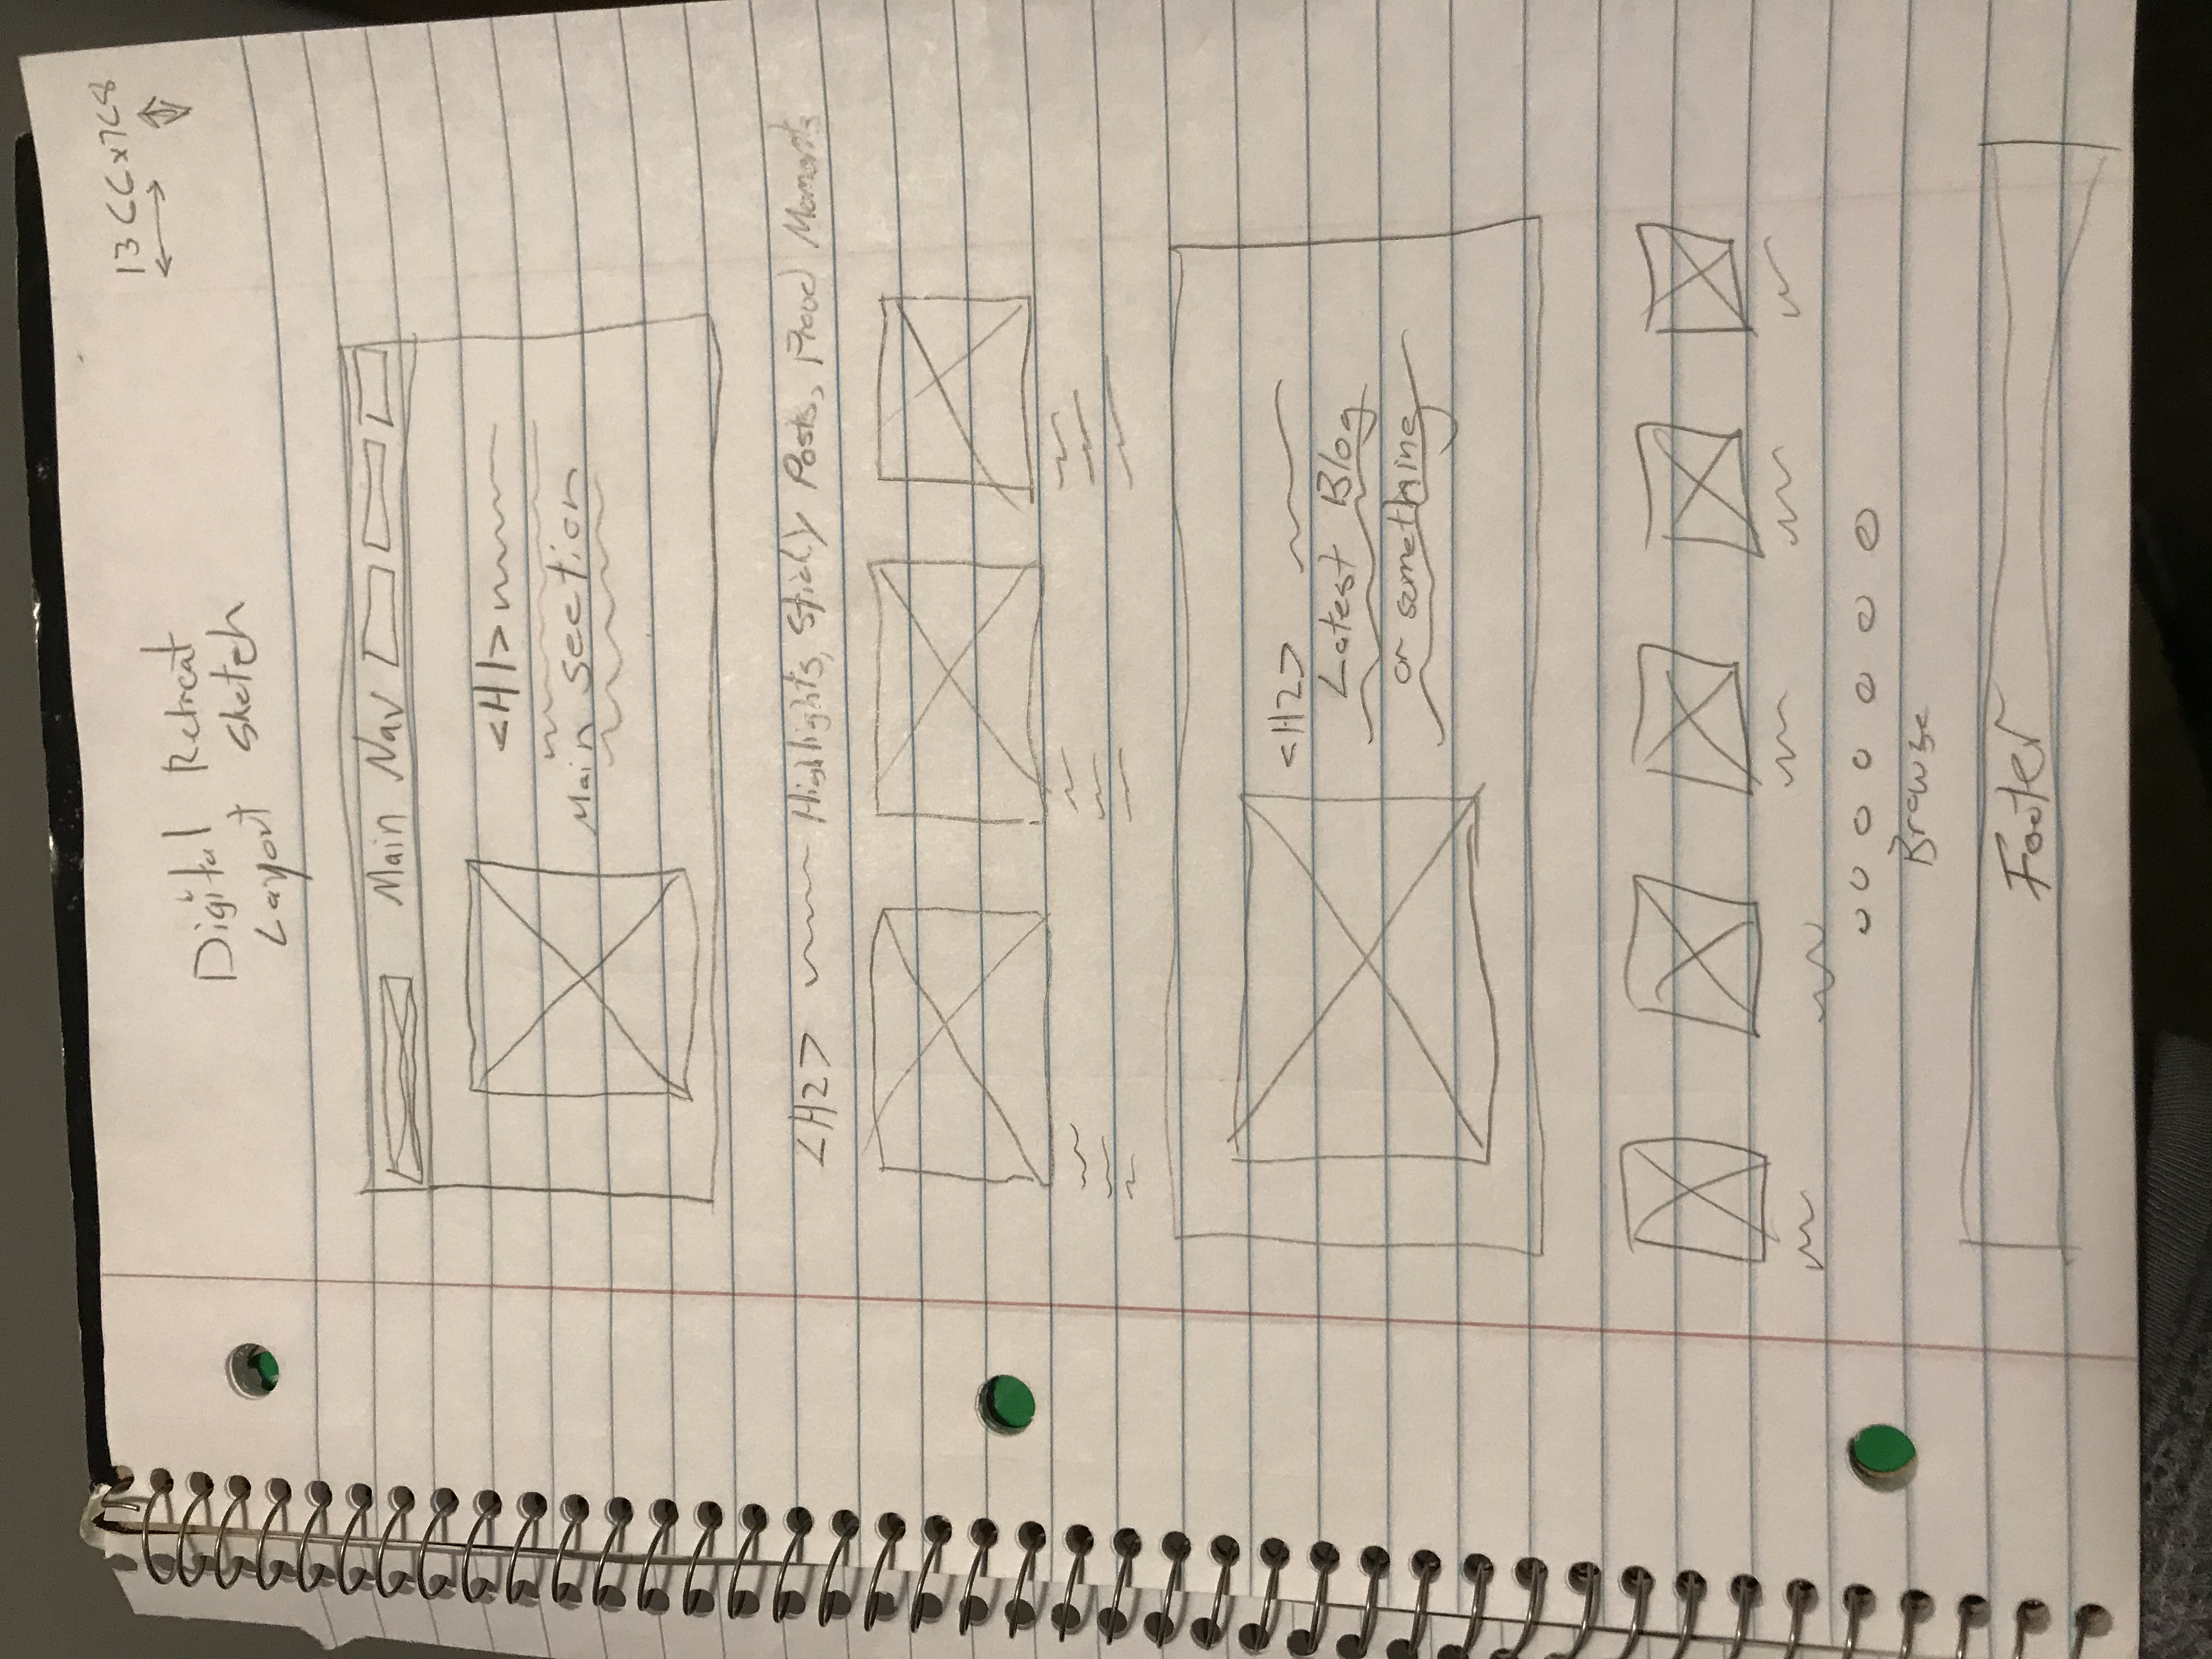 1366x768
Digital Retreat
Layout Sketch
Main Nav
<H1>
Main section
<H2> Highlights, Sticky Posts, Proud Moments
<H2>
Latest Blog
or something
Browse
Footer